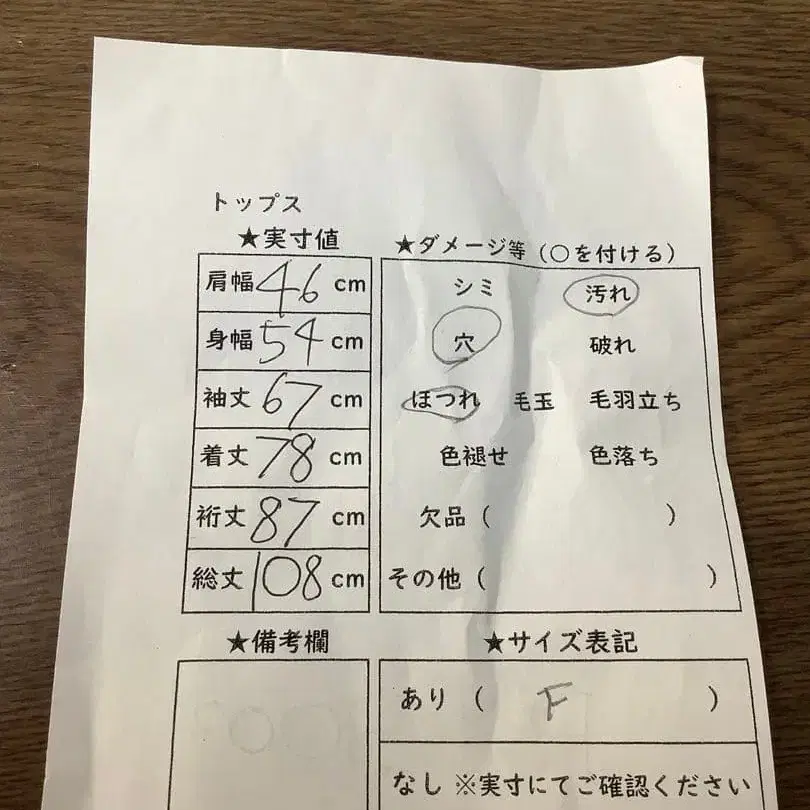 トップス
★実寸値
肩幅 46 cm
身幅 54 cm
袖丈 67 cm
着丈 78 cm
裄丈 87 cm
総丈 108 cm
★ダメージ等(○を付ける)
シミ 汚れ
穴 破れ
ほつれ 毛玉 毛羽立ち
色褪せ 色落ち
欠品( )
その他( )
★備考欄
★サイズ表記
あり( F )
なし ※実寸にてご確認ください